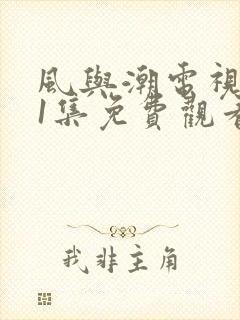 風與潮電視
1集免費觀看
我非主角